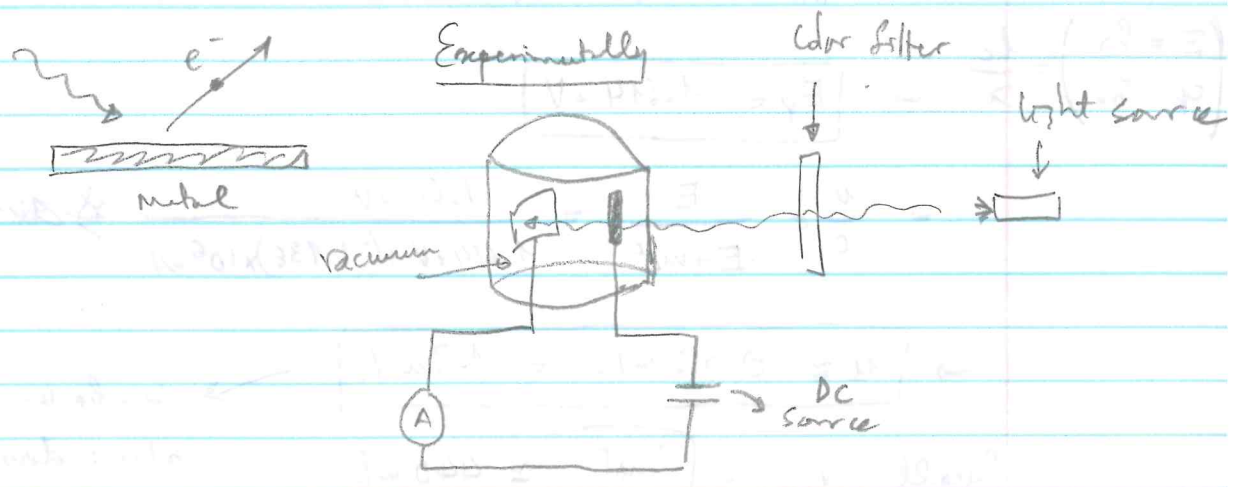 e⁻
Metal
Experimentally
Color filter
light source
vacuum
A
DC
source